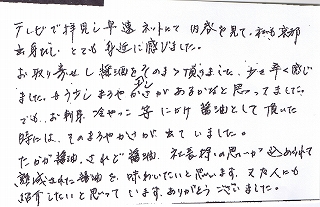 テレビで拝見し早速ネットにて内容を見て、私も京都
出身なし、とても身近に感じました。
お取り寄せし醤油をそのまゝ頂きました、少々辛く感じ
ました。もう少しまろやかさがあるかなと思ってました。
でも、お刺身、冷やっこ等にかけ醤油として頂いた
時には、そのまろやかさが出ていました。
たかが醤油、されど醤油、社長様の思いが込められて
熟成された醤油を、味わいたいと思います、又友人にも
紹介したいと思っています、ありがとうございました。